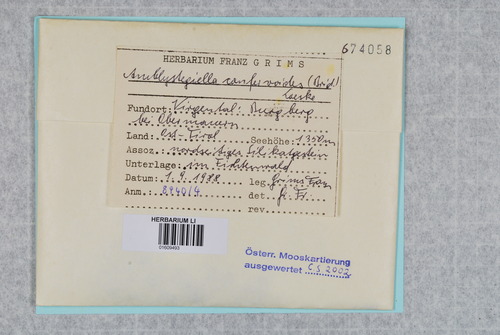 674058
HERBARIUM FRANZ GRIMS
Amblystegiella confervoides (Brid.)
Loeske
Fundort: Virgental: Burgberg
bei Obermauern
Land: Ost-Tirol Seehöhe: 1350m
Assoz. nordseitiger Silikatgestein
Unterlage: im Fichtenwald
Datum: 1.9.1988 leg. Grims Franz
Anm.: 8940/4 det. Gr. Fr.
rev.
HERBARIUM LI
01609493
Österr. Mooskartierung
ausgewertet CS 2002